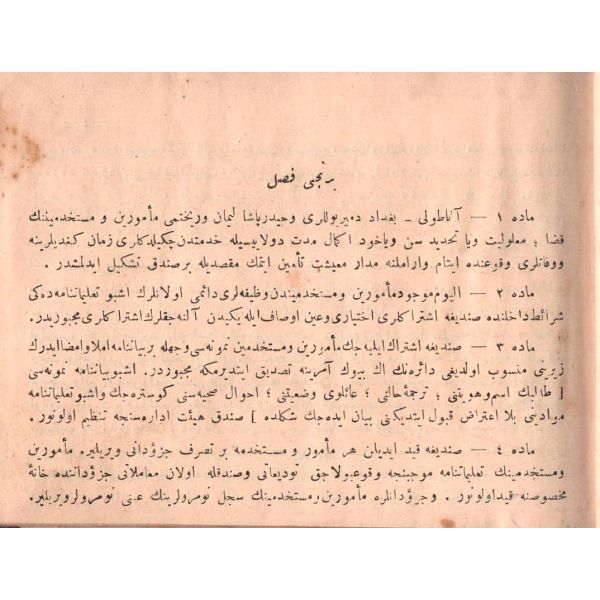 برنجی فصل
ماده ١ — آناطولی ـ بغداد دمیریوللری وحیدرپاشا لیمان وریختمی مأمورین و مستخدمیننك
قضا ؛ معلولیت ویا تحدید سن ویاخود اكمال مدت دولاییسیله خدمتدن چكیلدكلری زمان كندیلرینه
ووفاتلری وقوعنده ایتام وارامله‌نه مدار معیشت تأمین ایتمك مقصدیله برصندق تشكیل ایدلمشدر .
ماده ٢ — الیوم موجود مأمورین ومستخدمیندن وظیفه‌لری دائمی اولانلرك اشبو تعلیماتنامه‌ده‌كی
شرائط داخلنده صندیغه اشتراكلری اختیاری وعین اوصاف ایله یكیدن آلنه‌جقلرك اشتراكلری مجبوریدر .
ماده ٣ — صندیغه اشتراك ایلیه‌جك مأمورین ومستخدمین نمونه‌سی وجهله بربیاننامه املا وامضا ایدرك
زیرینی منسوب اولدیغی دائره‌نك اك بیوك آمرینه تصدیق ایتدیرمكه مجبوردر . اشبو بیاننامه نمونه‌سی
[ طالبك اسم وهویتنی ؛ ترجمۀ حالنی ؛ عائلوی وضعیتنی ؛ احوال صحیه‌سنی كوستره‌جك واشبو تعلیماتنامه
موادینی بلا اعتراض قبول ایتدیكنی بیان ایده‌جك شكلده ] صندق هیئت اداره‌سنجه تنظیم اولونور .
ماده ٤ — صندیغه قید ایدیلن هر مأمور و مستخدمه بر تصرف جزؤدانی ویریلیر . مأمورین
ومستخدمینك تعلیماتنامه موجبنجه وقوعبولاجق تودیعاتی وصندقله اولان معاملاتی جزؤداننده خانۀ
مخصوصنه قید اولونور . وجزؤدانلره مأمورین ومستخدمینك سجل نومرولرینك عینی نومرولر ویریلیر .